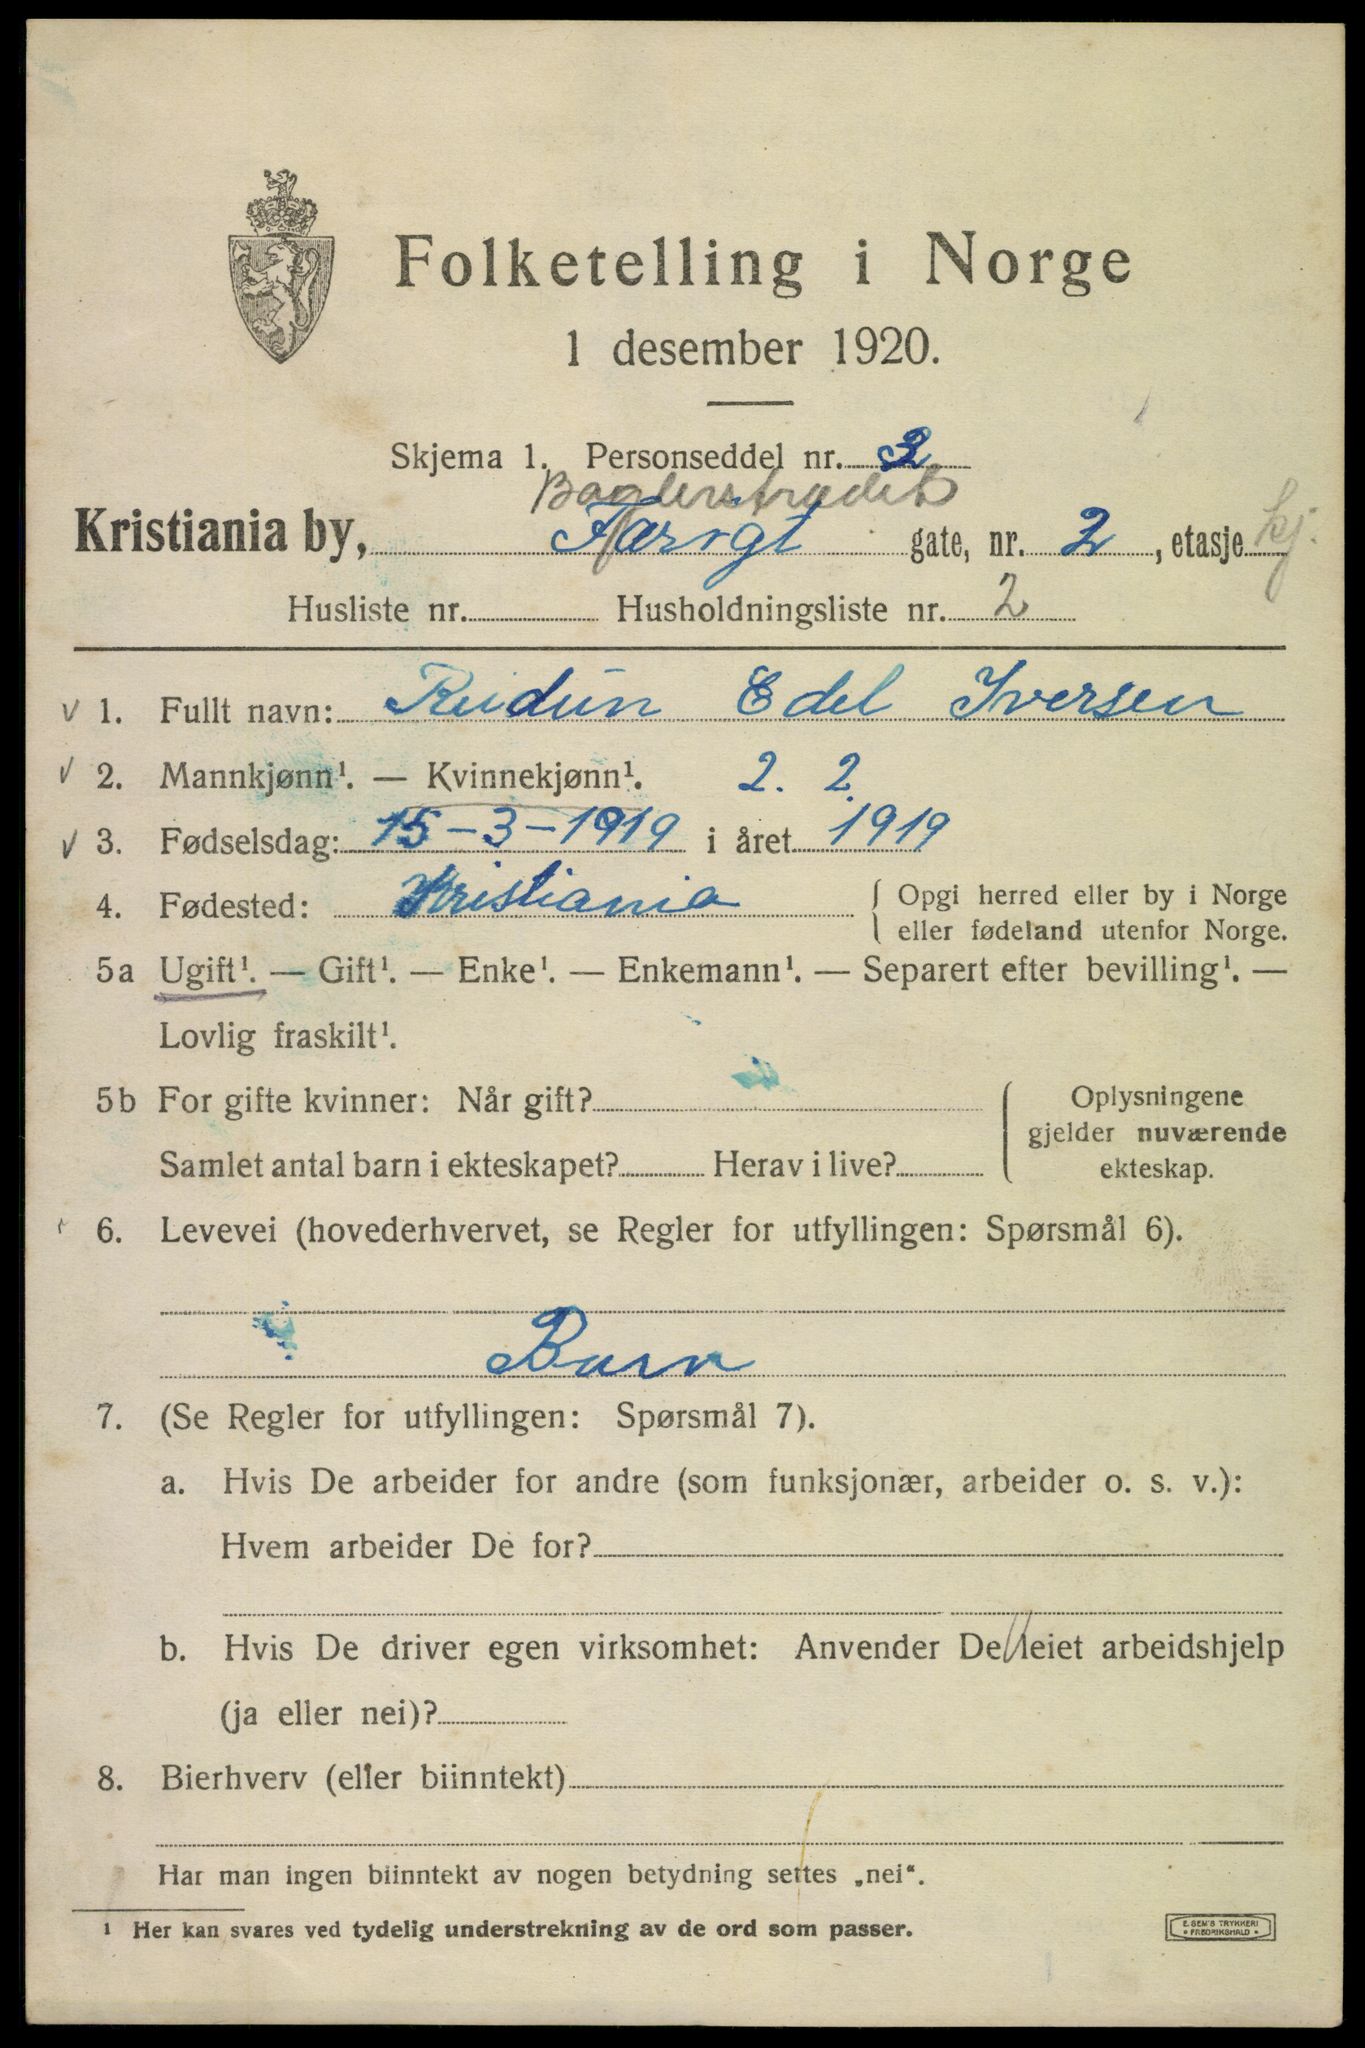 Folketelling i Norge
1 desember 1920.
Skjema 1. Personseddel nr. 3
Kristiania by, gate, nr. 2, etasje kj.
Husliste nr. Husholdningsliste nr. 2
1. Fullt navn: Reidun Edel Iversen
2. Mannkjønn¹. — Kvinnekjønn¹. 2. 2.
3. Fødselsdag: 15-3-1919 i året 1919
4. Fødested: Kristiania { Opgi herred eller by i Norge
eller fødeland utenfor Norge.
5a Ugift¹. — Gift¹. — Enke¹. — Enkemann¹. — Separert efter bevilling¹. —
Lovlig fraskilt¹.
5b For gifte kvinner: Når gift?
Samlet antal barn i ekteskapet? Herav i live?
Oplysningene
gjelder nuværende
ekteskap.
6. Levevei (hovederhvervet, se Regler for utfyllingen: Spørsmål 6).
Barn
7. (Se Regler for utfyllingen: Spørsmål 7).
a. Hvis De arbeider for andre (som funksjonær, arbeider o. s. v.):
Hvem arbeider De for?
b. Hvis De driver egen virksomhet: Anvender De leiet arbeidshjelp
(ja eller nei)?
8. Bierhverv (eller biinntekt)
Har man ingen biinntekt av nogen betydning settes „nei“.
¹ Her kan svares ved tydelig understrekning av de ord som passer.
E. SEM'S TRYKKERI
• FREDRIKSHALD •